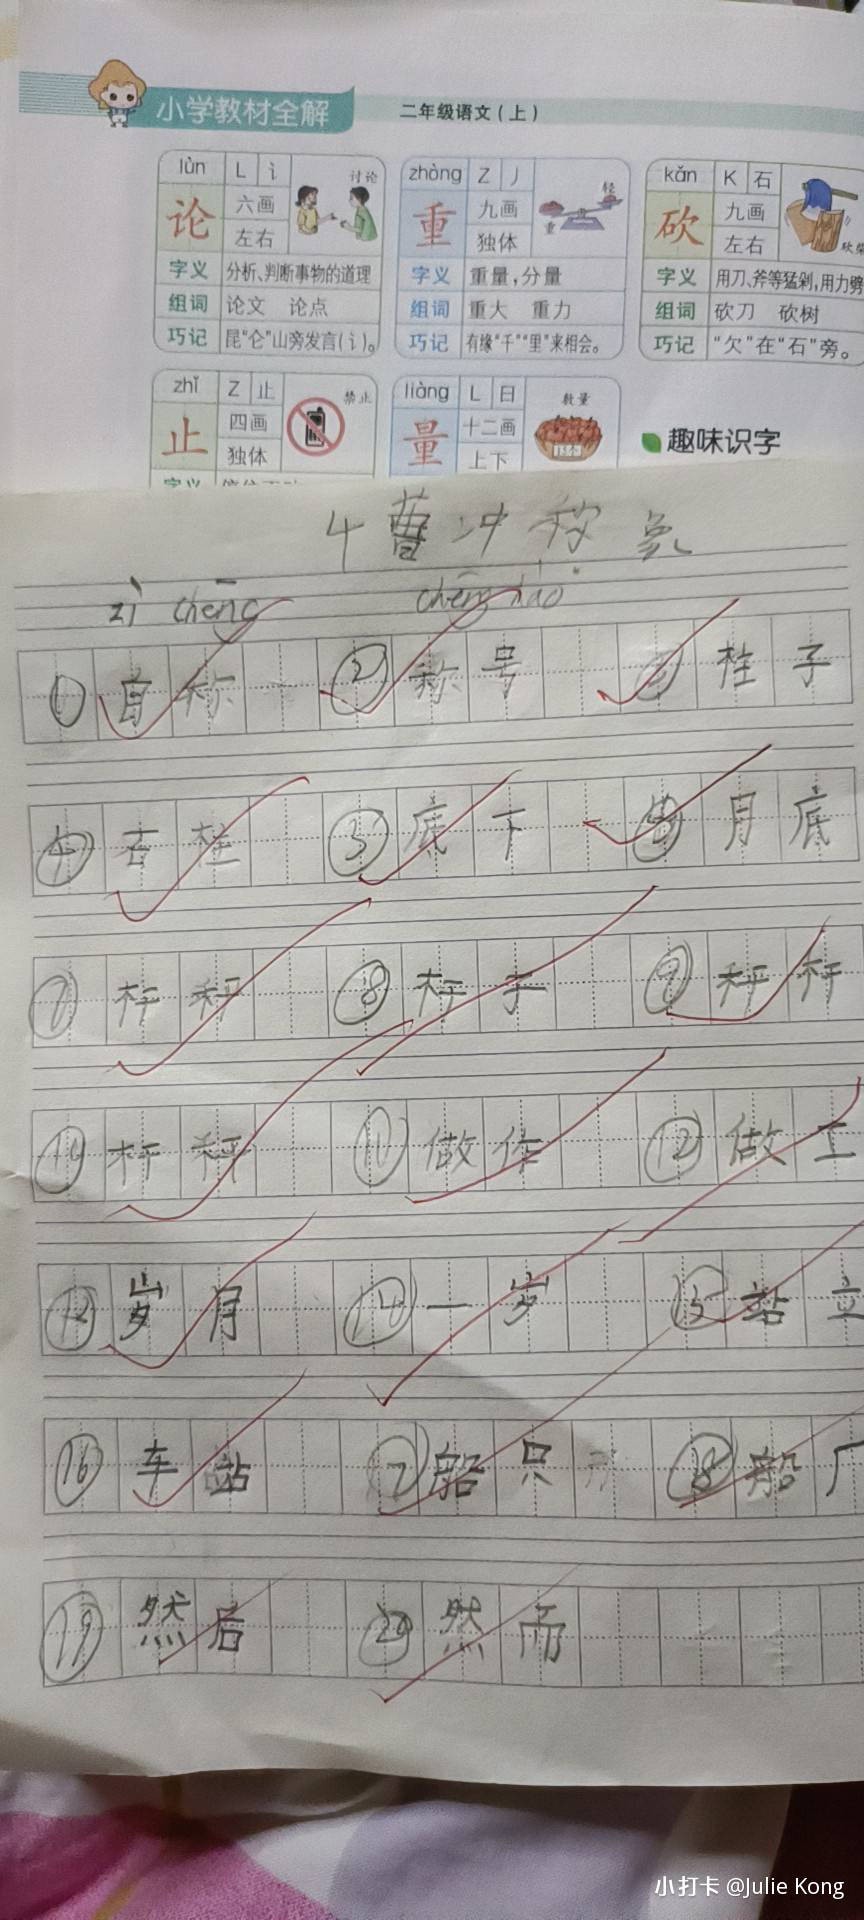 小学教材全解 二年级语文(上)
lùn L 讠 讨论
论 六画
左右
字义 分析、判断事物的道理
组词 论文 论点
巧记 昆“仑”山旁发言(讠)。
zhòng Z 丿 轻 重
重 九画
独体
字义 重量,分量
组词 重大 重力
巧记 有缘“千”“里”来相会。
kǎn K 石
砍 九画 砍柴
左右
字义 用刀、斧等猛剁,用力劈
组词 砍刀 砍树
巧记 “欠”在“石”旁。
zhǐ Z 止 禁止
止 四画
独体
liàng L 日 数量
量 十二画 15个
上下
趣味识字
4 曹冲称象
zì chēng chēng hào
① 自称 ② 称号 ③ 柱子
④ 石柱 ⑤ 底下 ⑥ 月底
⑦ 杆秤 ⑧ 杆子 ⑨ 秤杆
⑩ 杆秤 ⑪ 做作 ⑫ 做工
⑬ 岁月 ⑭ 一岁 ⑮ 站立
⑯ 车站 ⑰ 船只 ⑱ 船厂
⑲ 然后 ⑳ 然而
小打卡 @Julie Kong